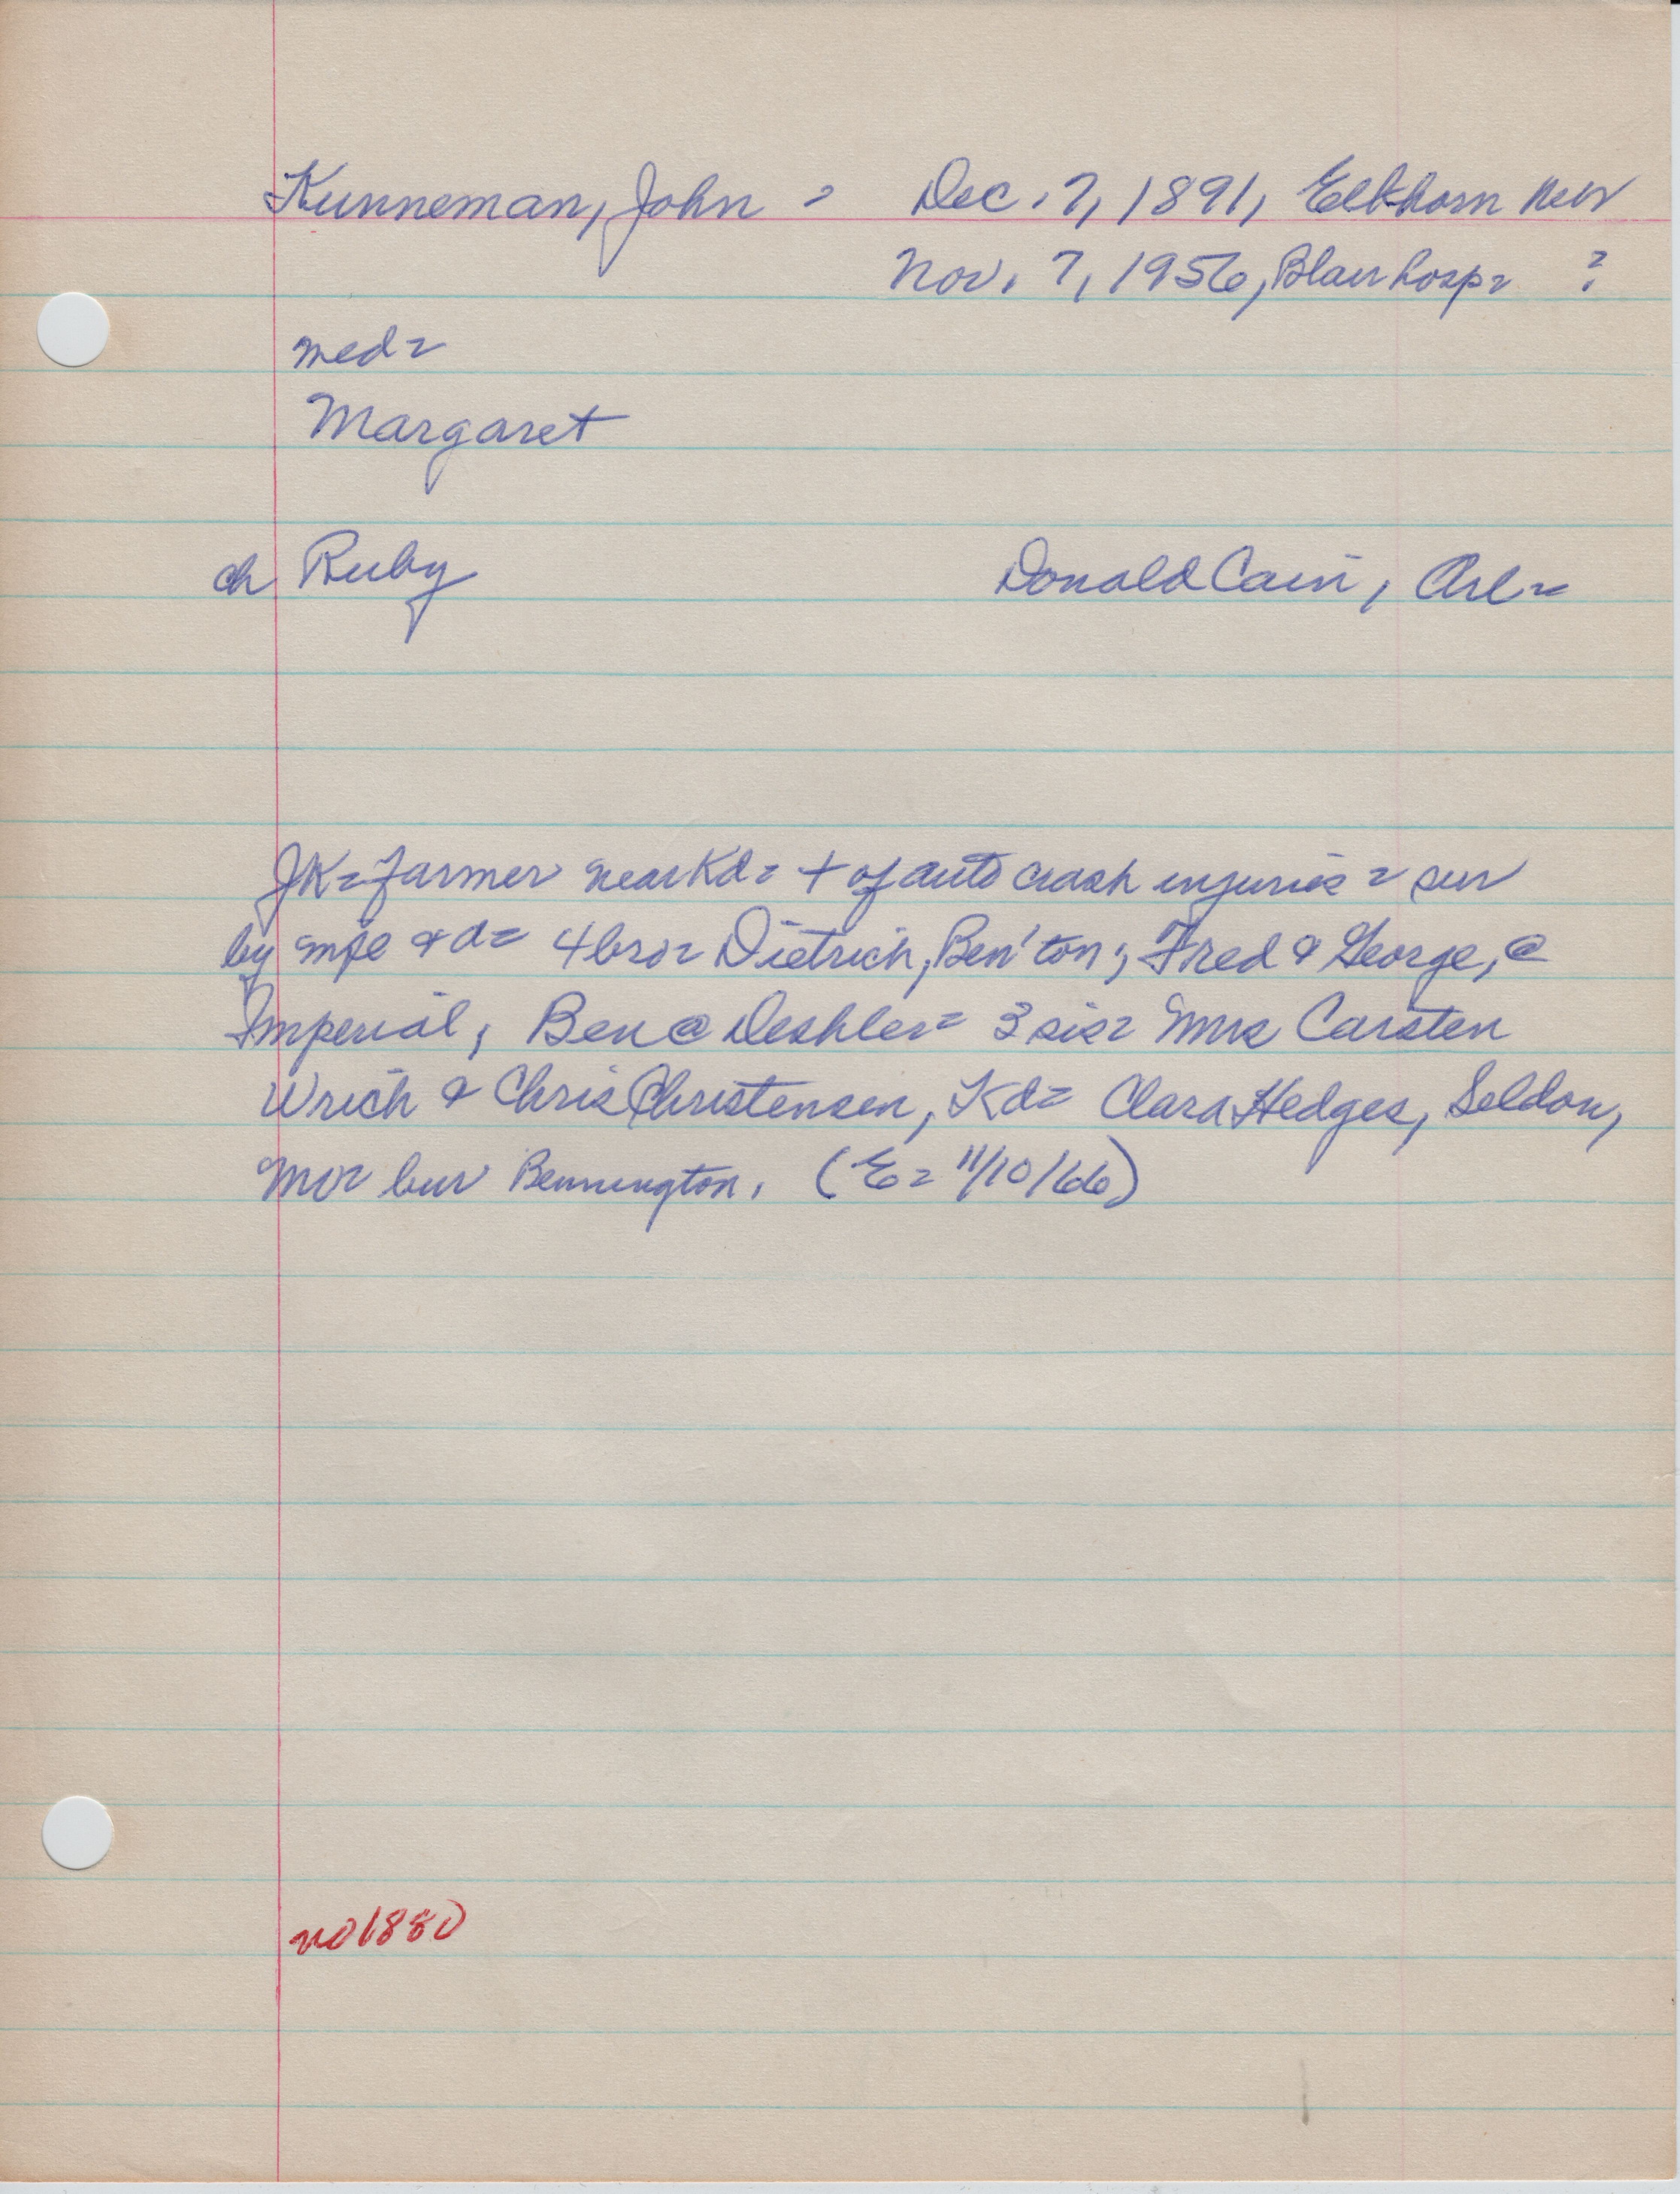 Kunneman, John = Dec. 7, 1891, Elkhorn Neb
Nov. 7, 1956, Blair hosp= ?
med=
Margaret
ch Ruby Donald Cain, Arl=
JK= farmer near Kd= + of auto crash injuries = sur
by wife & d= 4 bro= Dietrich, Ben'ton; Fred & George, @
Imperial, Ben @ Deshler= 3 sis= Mmes Carsten
Wrich & Chris Christensen, Kd= Clara Hedges, Seldon,
Mo= bur Bennington. (E= 11/10/66)
no 1880